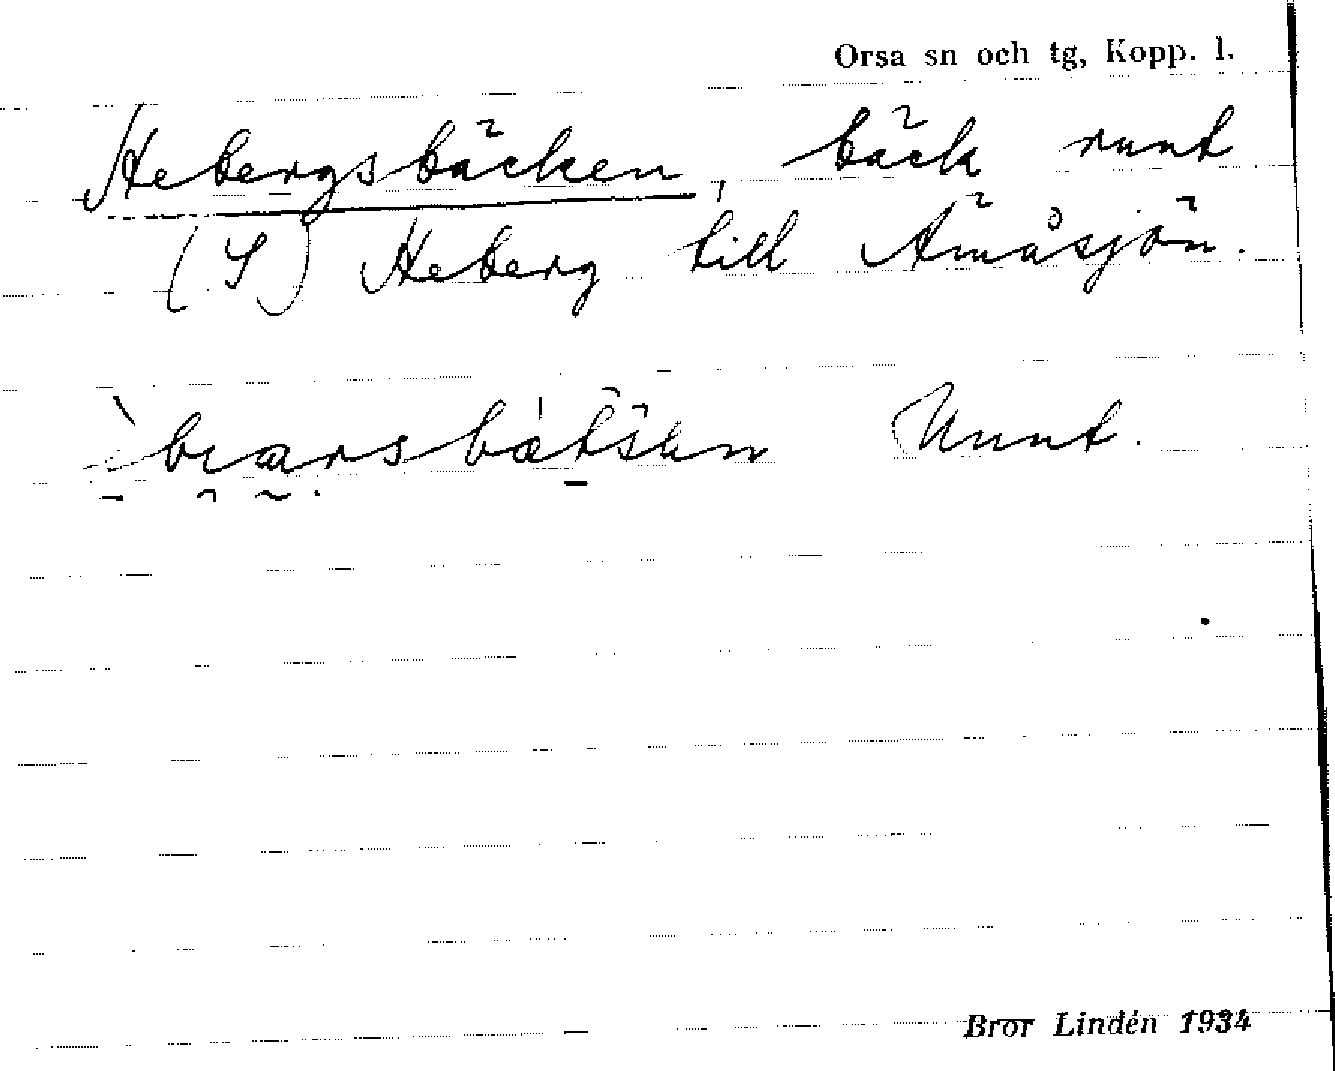 Orsa sn och tg, Kopp. l.
Hebergsbäcken, bäck runt
(S) Heberg till Ämåsjön.
Unnt.
Bror Lindén 1934